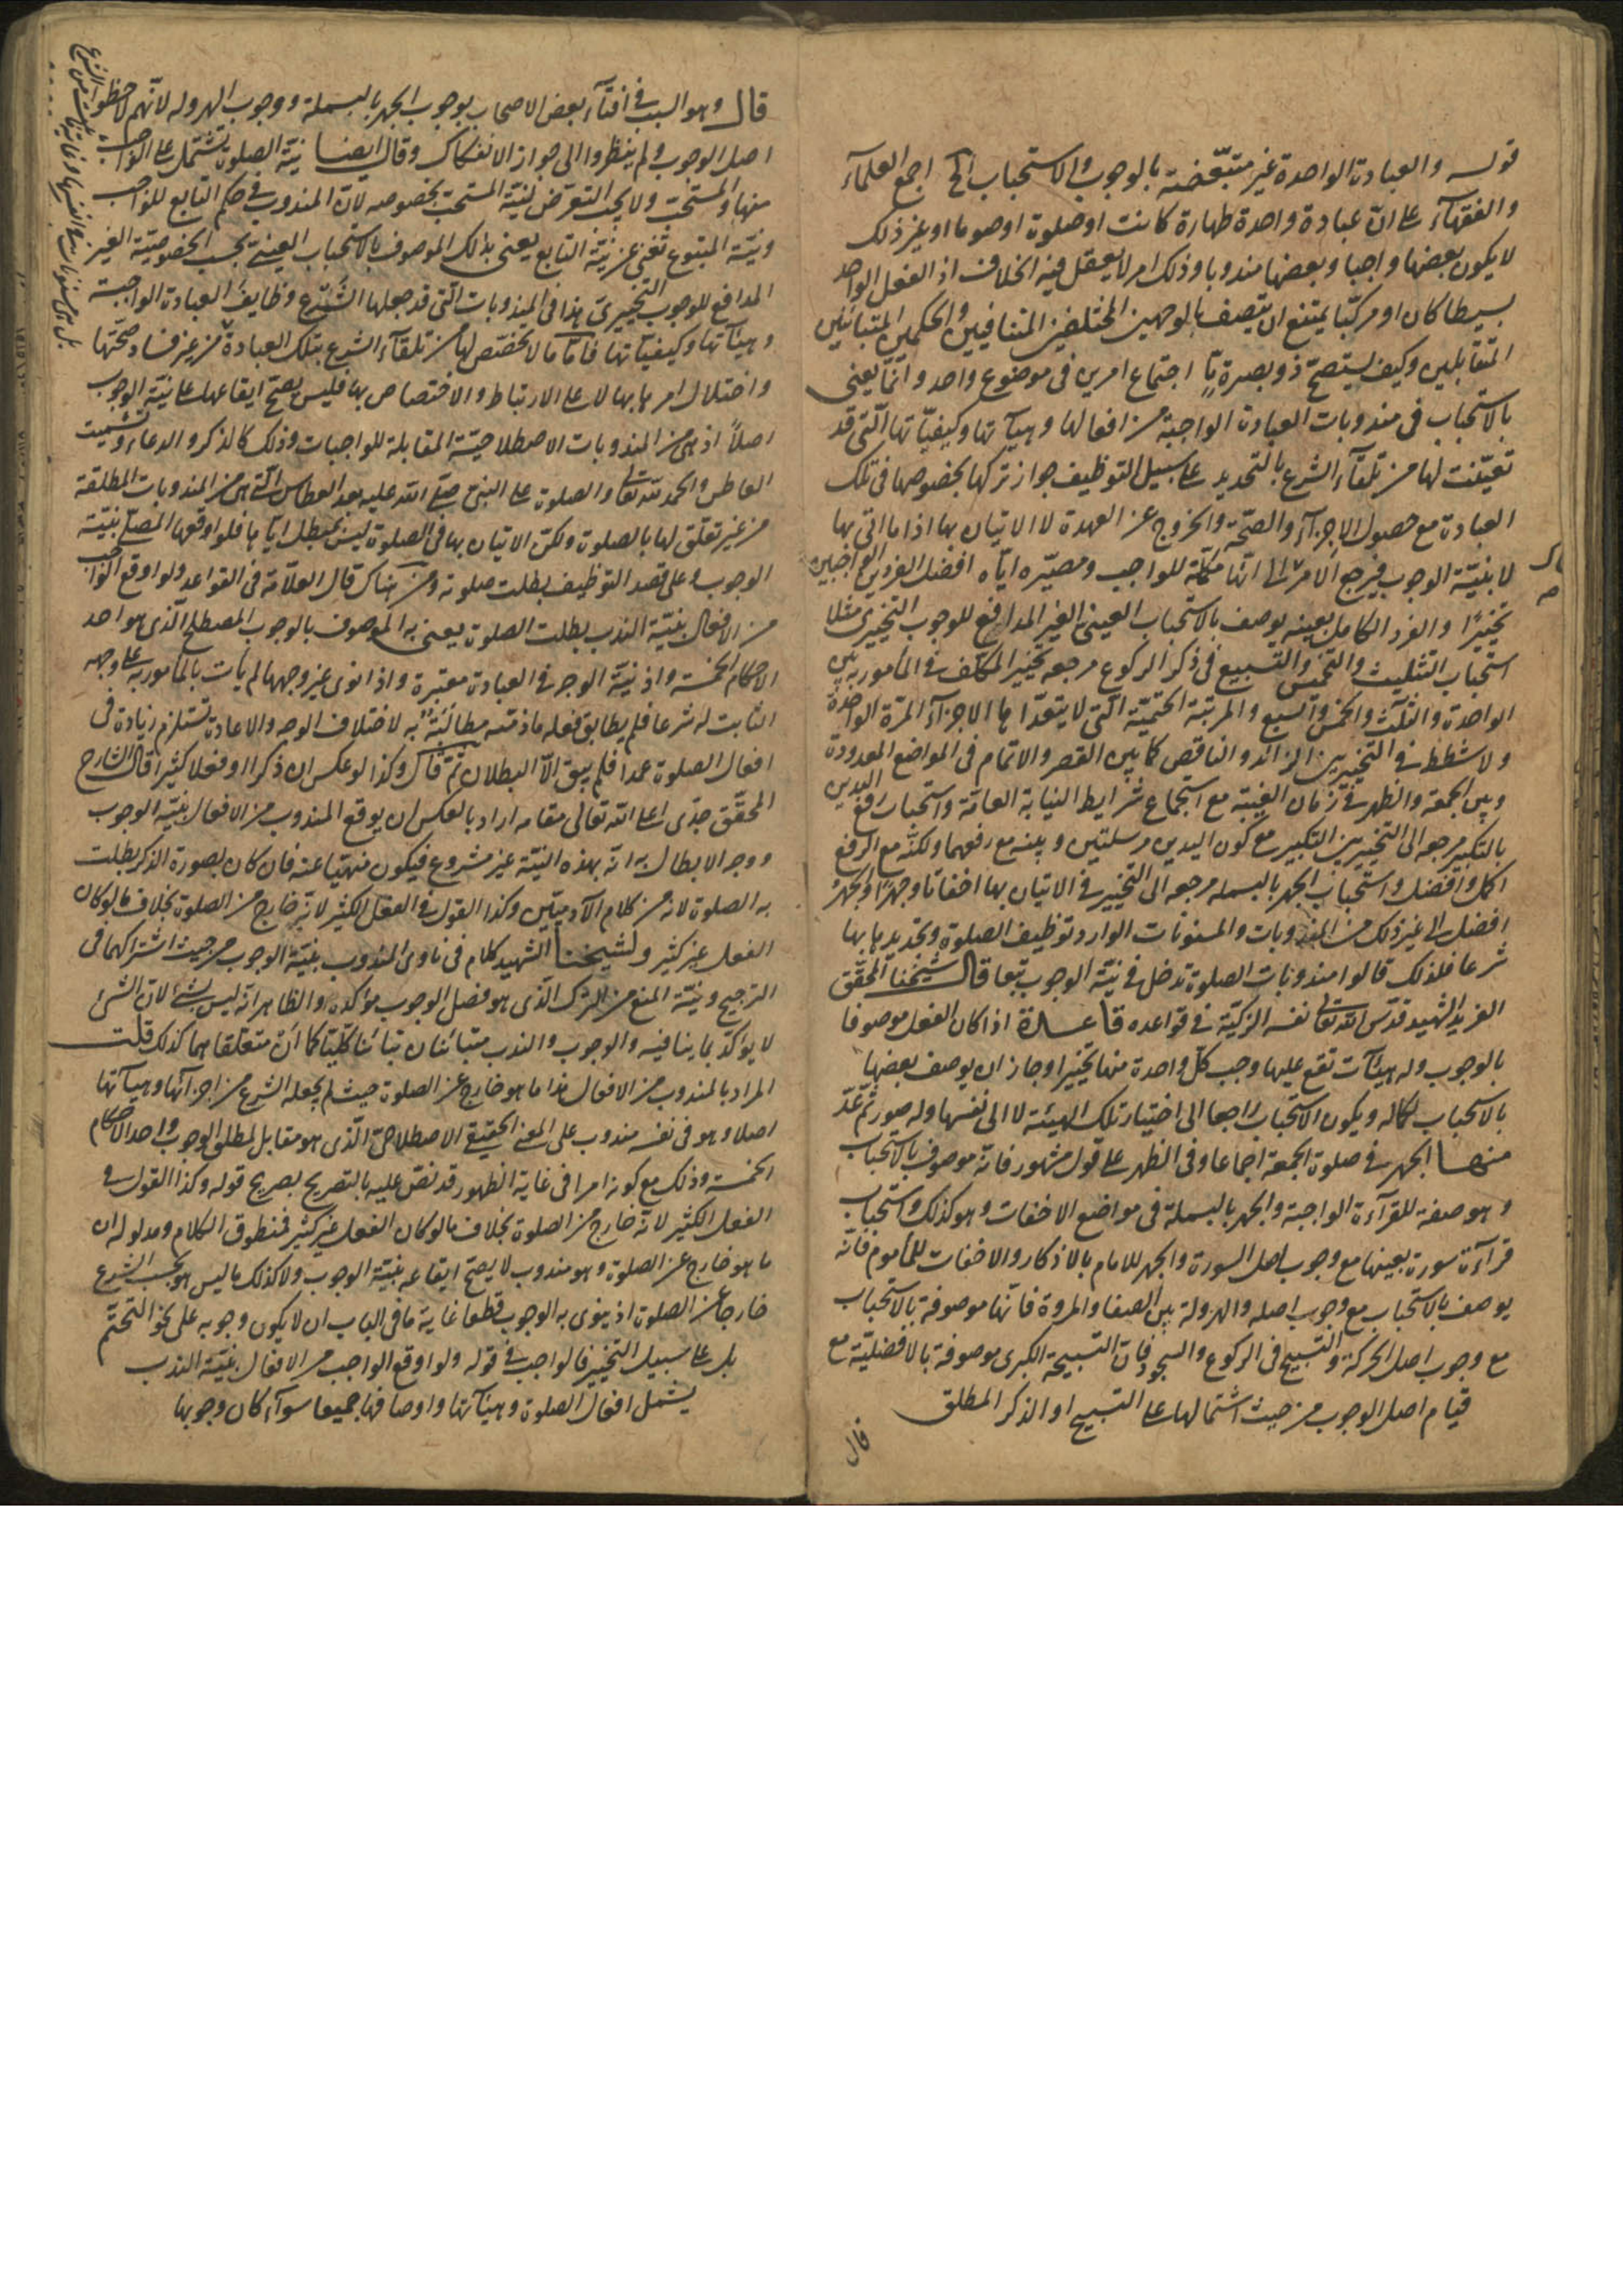 قوله والعبادة الواحدة غير متبعّضة بالوجوب والاستحباب الخ اجمع العلمآء
والفقهآء على انّ عبادة واحدة طهارة كانت او صلوة او صوما او غير ذلك
لا يكون بعضها واجبا وبعضها مندوبا وذلك امر لا يعقل فيه الخلاف اذ الفعل الواحد
بسيطا كان او مركّبا يمتنع ان يتصف بالوجهين المختلفين المتنافيين والحكمين المتباينين
المتقابلين وكيف يستصحّ ذو بصيرة مّا اجتماع امرين فى موضوع واحد وانّما يعنى
بالاستحباب فى مندوبات العبادة الواجبة من افعالها وهيآتها وكيفيّاتها الّتى قد
تعيّنت لها من تلقآء الشرع بالتحديد على سبيل التوظيف جواز تركها بخصوصها فى تلك
العبادة مع حصول الاجزآء والصحّة والخروج عن العهدة لا الاتيان بها اذا ما اتى بها
لا بنيّة الوجوب فيرجع الامر الى انّها مكمّلة للواجب ومصيّره ايّاه افضل الفردين الواجبين
تخييرًا والفرد الكامل بعينه يوصف بالاستحباب العينى الغير المدافع للوجوب التخييرى مثلا
استحباب التثليث والتخميس والتسبيع فى ذكر الركوع مرجعه تخيير المكلّف فى المأمور به بين
الواحدة والثلث والخمس والسبع والمرتبة الحتميّة الّتى لا يتعدّاها الاجزآء المرّة الواحدة
ولا شطط فى التخيير بين الزائد والناقص كما بين القصر والاتمام فى المواضع المعدودة
وبين الجمعة والظهر فى زمان الغيبة مع استجماع شرايط النيابة العامّة واستحباب رفع اليدين
بالتكبير مرجعه الى التخيير بين التكبير مع كون اليدين مرسلتين وبينه مع رفعهما ولكنّه مع الرفع
اكمل وافضل واستحباب الجهر بالبسملة مرجعه الى التخيير فى الاتيان بها اخفاتا وجهرًا والجهر
افضل الى غير ذلك من المندوبات والمسنونات الوارد توظيف الصلوة وتحديدها بها
شرعا فلذلك قالوا مندوبات الصلوة تدخل فى نيّة الوجوب تبعا قال شيخنا المحقّق
الفريد الشهيد قدّس الله تعالى نفسه الزكيّة فى قواعده قاعدة اذا كان الفعل موصوفا
بالوجوب وله هيئآت تقع عليها وجب كلّ واحدة منها تخييرا وجاز ان يوصف بعضها
بالاستحباب لكماله ويكون الاستحباب راجعا الى اختيار تلك الهيئة لا الى نفسها وله صور ثمّ عدّ
منها الجهر فى صلوة الجمعة اجماعا وفى الظهر على قول مشهور فانّه موصوف بالاستحباب
وهو صفة للقرآءة الواجبة والجهر بالبسملة فى مواضع الاخفات وهو كذلك واستحباب
قرآءة سورة بعينها مع وجوب اصل السورة والجهر للامام بالاذكار والاخفات للمأموم فانّه
يوصف بالاستحباب مع وجوب اصله والهرولة بين الصفا والمروة فانّها موصوفة بالاستحباب
مع وجوب اصل الحركة والتسبيح فى الركوع والسجود فانّ التسبيحة الكبرى موصوفة بالافضليّة مع
قيام اصل الوجوب من حيث اشتمالها على التسبيح او الذكر المطلق
قال
قال وهو السبب فى افتآء بعض الاصحاب بوجوب الجهر بالبسملة ووجوب الهرولة لانّهم لاحظوا
اصل الوجوب ولم ينظروا الى جواز الانفكاك وقال ايضا نيّة الصلوة تشتمل على الواجب
منها والمستحبّ ولا يجب التعرّض لنيّة المستحبّ بخصوصه لانّ المندوب فى حكم التابع للواجب
ونيّة المتبوع تغنى عن نيّة التابع يعنى بذلك الموصوف بالاستحباب العينى بحسب الخصوصيّة الغير
المدافع للوجوب التخييرى هذا فى المندوبات الّتى قد جعلها الشرع وظايف العبادة الواجبة
وهيئآتها وكيفيّاتها فامّا ما لا يختصّ لها من تلقآء الشرع بتلك العبادة من غير فساد صحّتها
واختلال امرها بها لا على الارتباط والاختصاص بها فليس يصحّ ايقاعها على نيّة الوجوب
اصلًا اذ هى من المندوبات الاصطلاحيّة المقابلة للواجبات وذلك كالذكر والدعاء وتسميت
العاطس والحمد لله تعالى والصلوة على النبى صلّى الله عليه بعد العطاس الّتى هى من المندوبات المطلقة
من غير تعلّق لها بالصلوة ولكنّ الاتيان بها فى الصلوة ليس يبطل ايّاها فلو اوقعها المصلّى بنيّة
الوجوب وعلى قصد التوظيف بطلت صلوته ومن هناك قال العلّامة فى القواعد ولو اوقع الواجب
من الافعال بنيّة الندب بطلت الصلوة يعنى به الموصوف بالوجوب المصطلح الّذى هو احد
الاحكام الخمسة واذ نيّة الوجه فى العبادة معتبرة واذا نوى غير وجهها لم يأت بالمأمور به على وجهه
الثابت له شرعا فلم يطابق فعله ما ذمّته مطالبة به لاختلاف الوجه والاعادة تستلزم زيادة فى
افعال الصلوة عمدا فلم يبق الّا البطلان ثمّ قال وكذا لو عكس ان ذكرا او فعلا كثيرا قال الشارح
المحقّق جدّى اعلى الله تعالى مقامه اراد بالعكس ان يوقع المندوب من الافعال بنيّة الوجوب
ووجه الابطال به انّه بهذه النيّة غير مشروع فيكون منهيّا عنه فان كان بصورة الذكر بطلت
به الصلوة لانّه من كلام الآدميّين وكذا القول فى الفعل الكثير لانّه خارج من الصلوة بخلاف ما لو كان
الفعل غير كثير ولشيخنا الشهيد كلام فى ناوى المندوب بنيّة الوجوب من حيث اشتراكهما فى
الترجيح ونيّة المنع من الترك الّذى هو فصل الوجوب مؤكّده والظاهر انّه ليس بشئ لانّ الشئ
لا يؤكّد بما ينافيه والوجوب والندب متباينان تباينا كلّيّا كما انّ متعلّقاهما كذلك قلت
المراد بالمندوب من الافعال هذا ما هو خارج عن الصلوة حيث لم يجعله الشرع من اجزآئها وهيآتها
اصلا وهو فى نفسه مندوب على المعنى الحقيقى الاصطلاحىّ الّذى هو مقابل لمطلق الوجوب واحد الاحكام
الخمسة وذلك مع كونه امرا فى غاية الظهور قد نصّ عليه بالتصريح بصريح قوله وكذا القول فى
الفعل الكثير لانّه خارج من الصلوة بخلاف ما لو كان الفعل غير كثير فمنطوق الكلام ومدلوله ان
ما هو خارج عن الصلوة وهو مندوب لا يصحّ ايقاعه بنيّة الوجوب ولا كذلك ما ليس هو بحسب الشرع
خارجا عن الصلوة اذ ينوى به الوجوب قطعا غاية ما فى الباب ان لا يكون وجوبه على نحو التحتّم
بل على سبيل التخيير فالواجب فى قوله ولو اوقع الواجب من الافعال بنيّة الندب
يشمل افعال الصلوة وهيئآتها واوصافها جميعا سوآء كان وجوبها